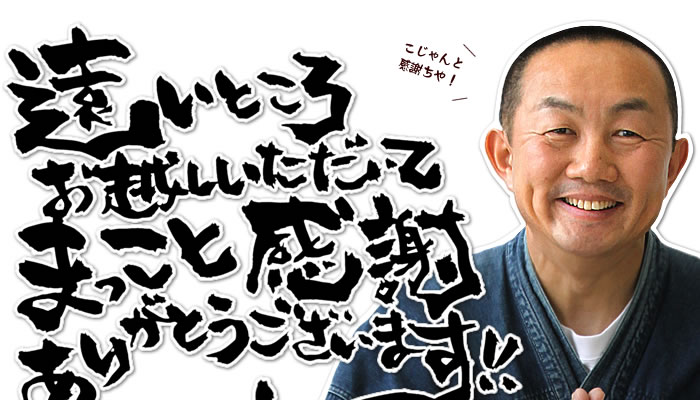 遠いところ
お越しいただいて
まっこと感謝
ありがとうございます!!
こじゃんと
感謝ちや！